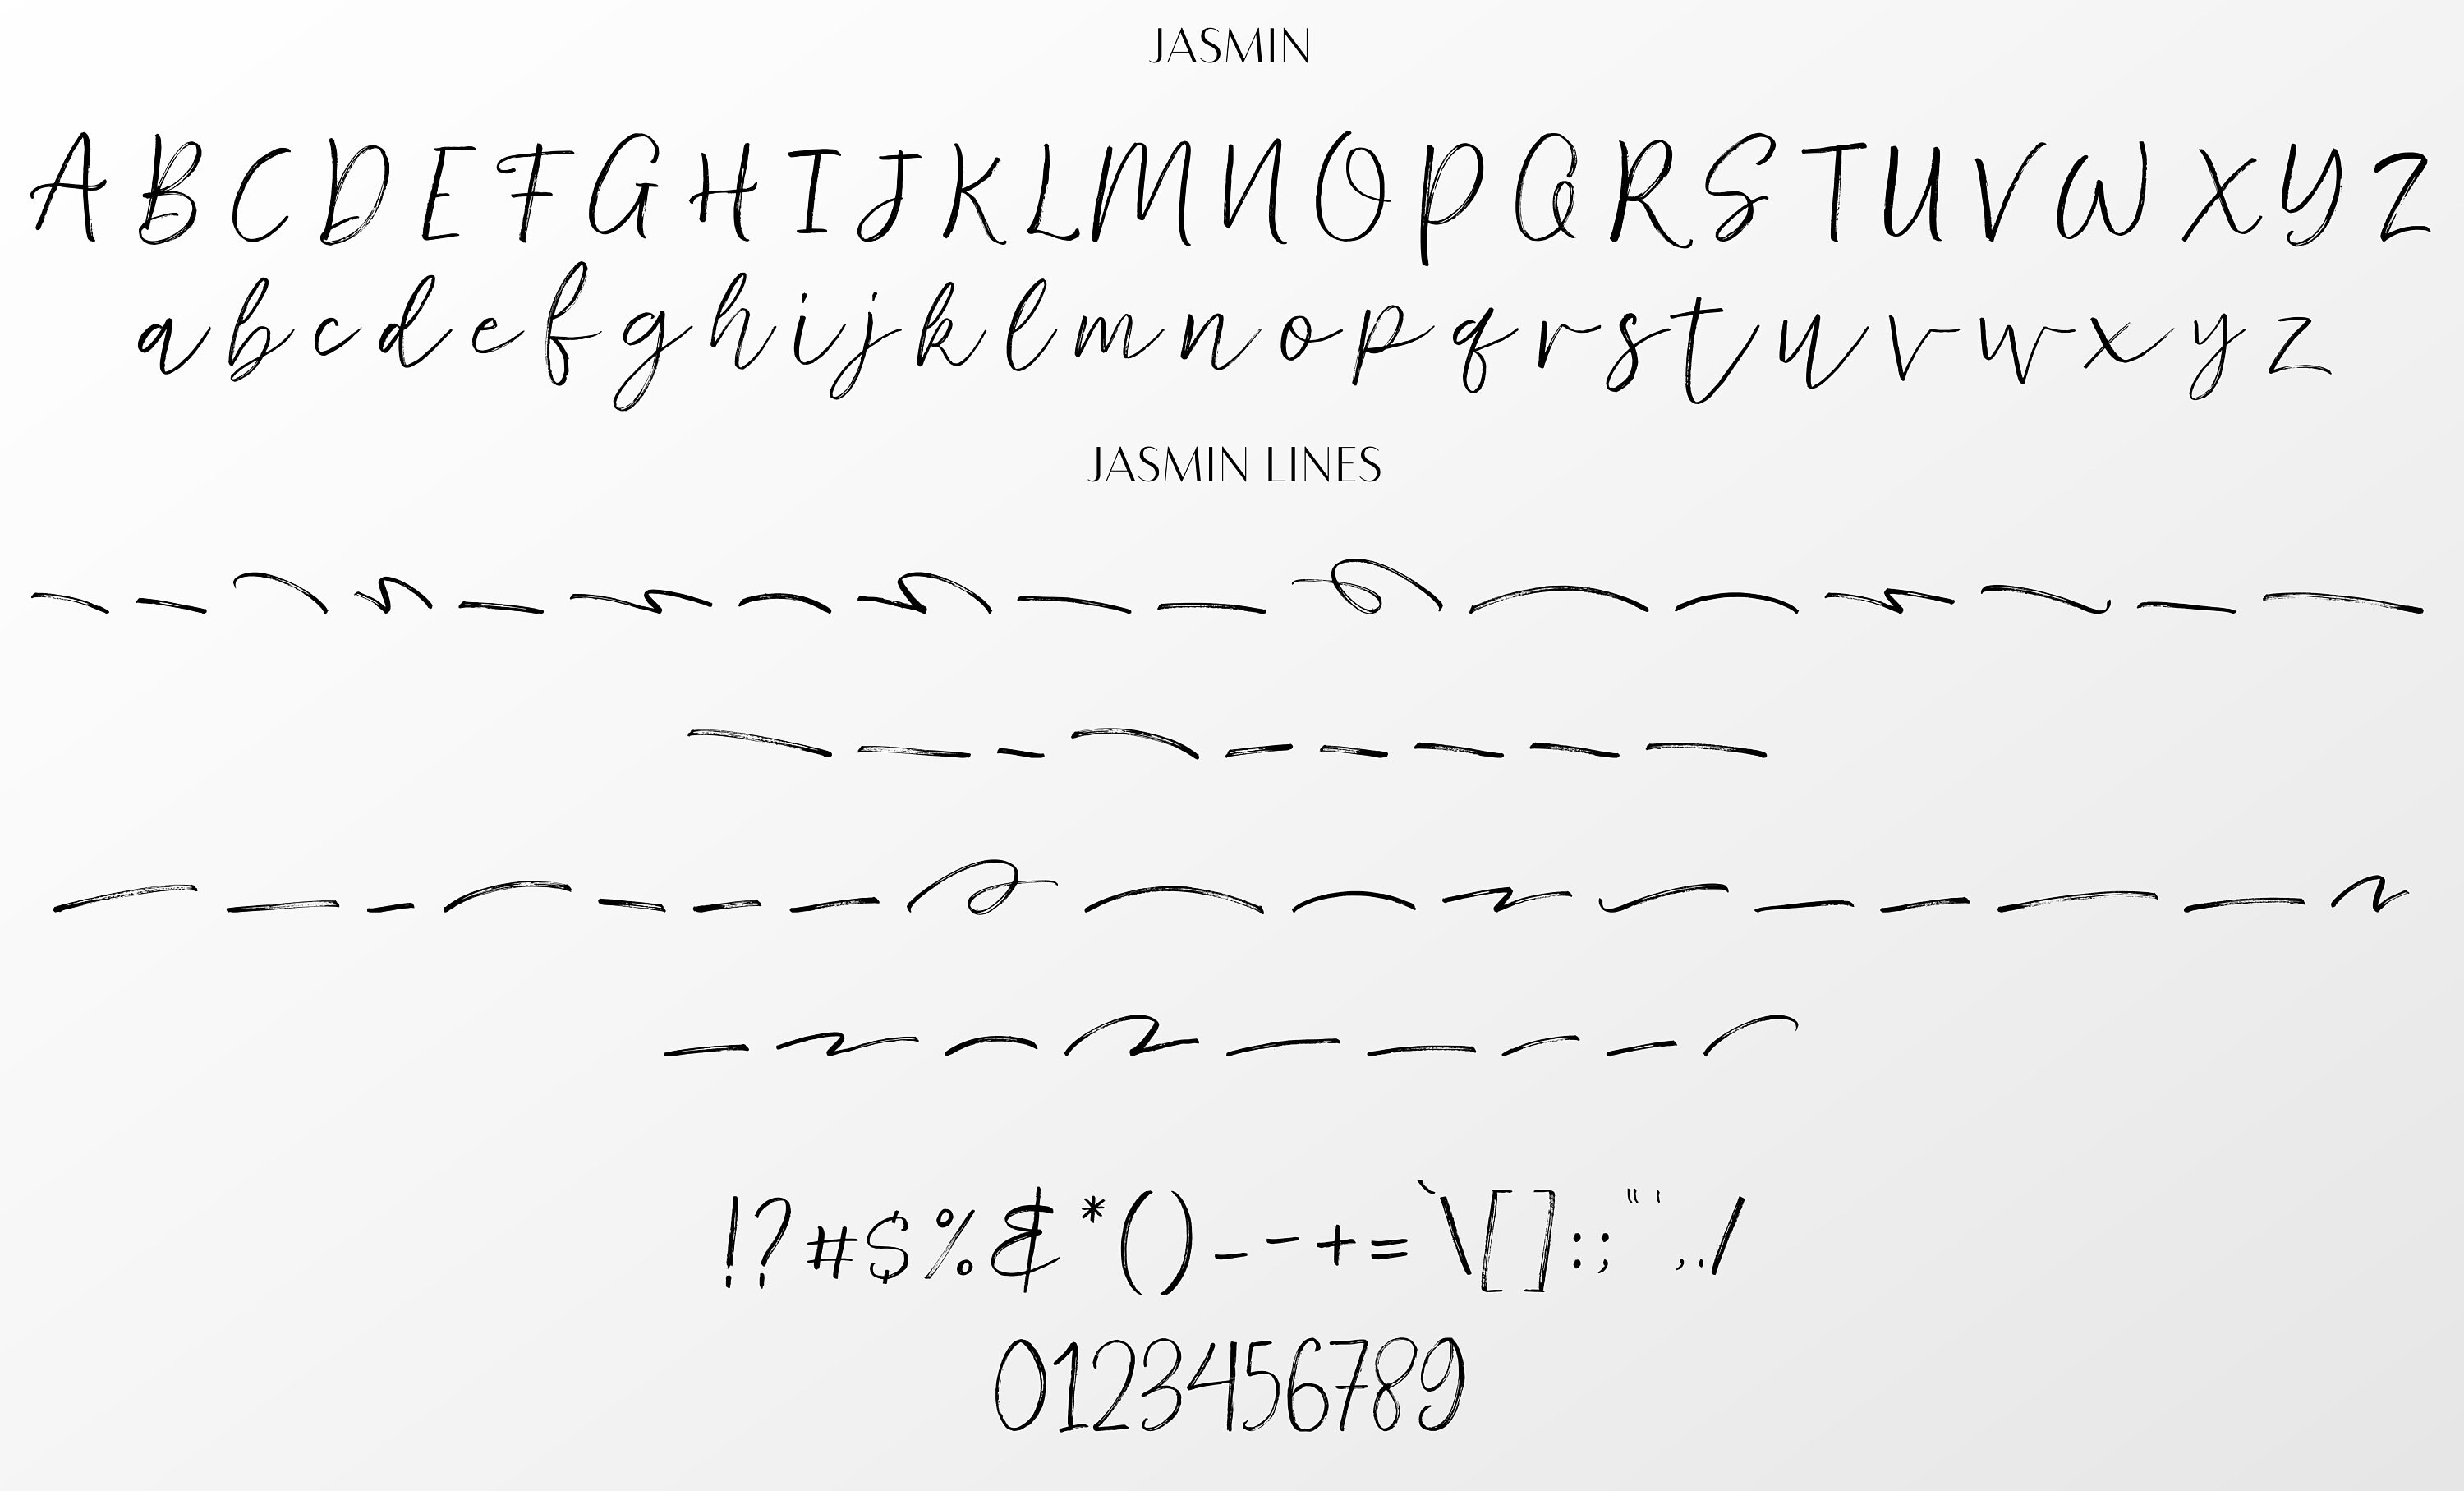 JASMIN
A B C D E F G H I J K L M N O P Q R S T U V W X Y Z
a b c d e f g h i j k l m n o p q r s t u v w x y z
JASMIN LINES
! ? # $ % & * ( ) _ - + = ` \ [ ] : ; " ' , . /
0123456789